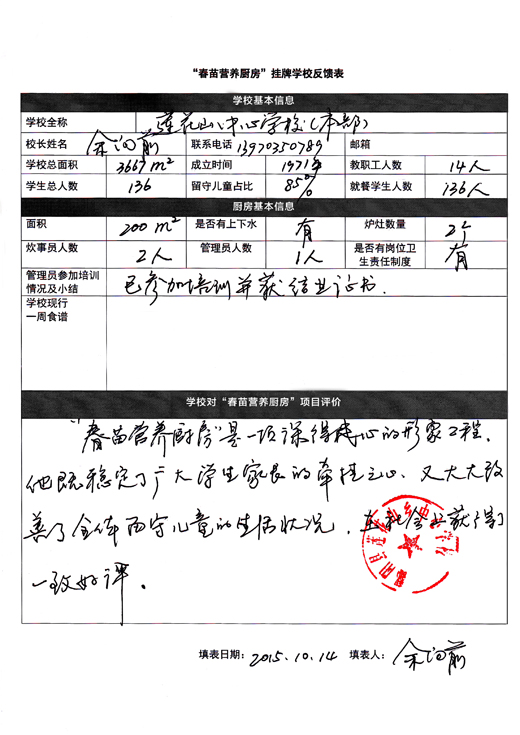 “春苗营养厨房”挂牌学校反馈表
学校基本信息
学校全称 莲花山中心学校(本部)
校长姓名 余向前 联系电话 13970350789 邮箱
学校总面积 3667m² 成立时间 1971年 教职工人数 14人
学生总人数 136 留守儿童占比 85% 就餐学生人数 136人
厨房基本信息
面积 200m² 是否有上下水 有 炉灶数量 2个
炊事员人数 2人 管理员人数 1人 是否有岗位卫
生责任制度 有
管理员参加培训
情况及小结 已参加培训并获结业证书.
学校现行
一周食谱
学校对“春苗营养厨房”项目评价
“春苗营养厨房”是一项深得民心的形象工程.
他既稳定了广大学生家长的牵挂之心、又大大改
善了全体留守儿童的生活状况. 在社会上获得
一致好评.
填表日期: 2015.10.14 填表人: 余向前